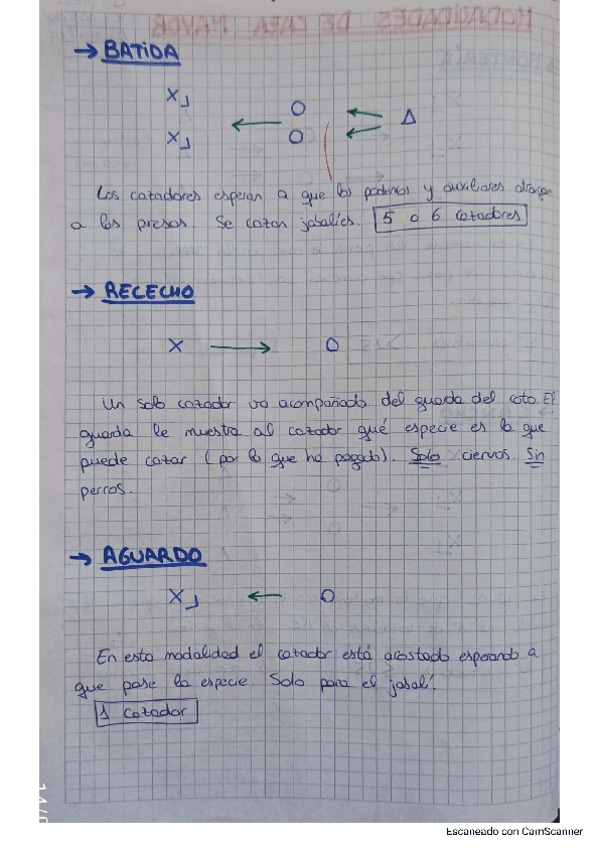 → BATIDA
Los cazadores esperan a que los podencos y auxiliares atraigan
a las presas. Se cazan jabalíes. 5 o 6 cazadores
→ RECECHO
Un solo cazador va acompañado del guarda del coto. El
guarda le muestra al cazador qué especie es la que
puede cazar (por lo que ha pagado). Solo ciervos. Sin
perros.
→ AGUARDO
En esta modalidad el cazador está acostado esperando a
que pase la especie. Solo para el jabalí.
1 cazador
Escaneado con CamScanner